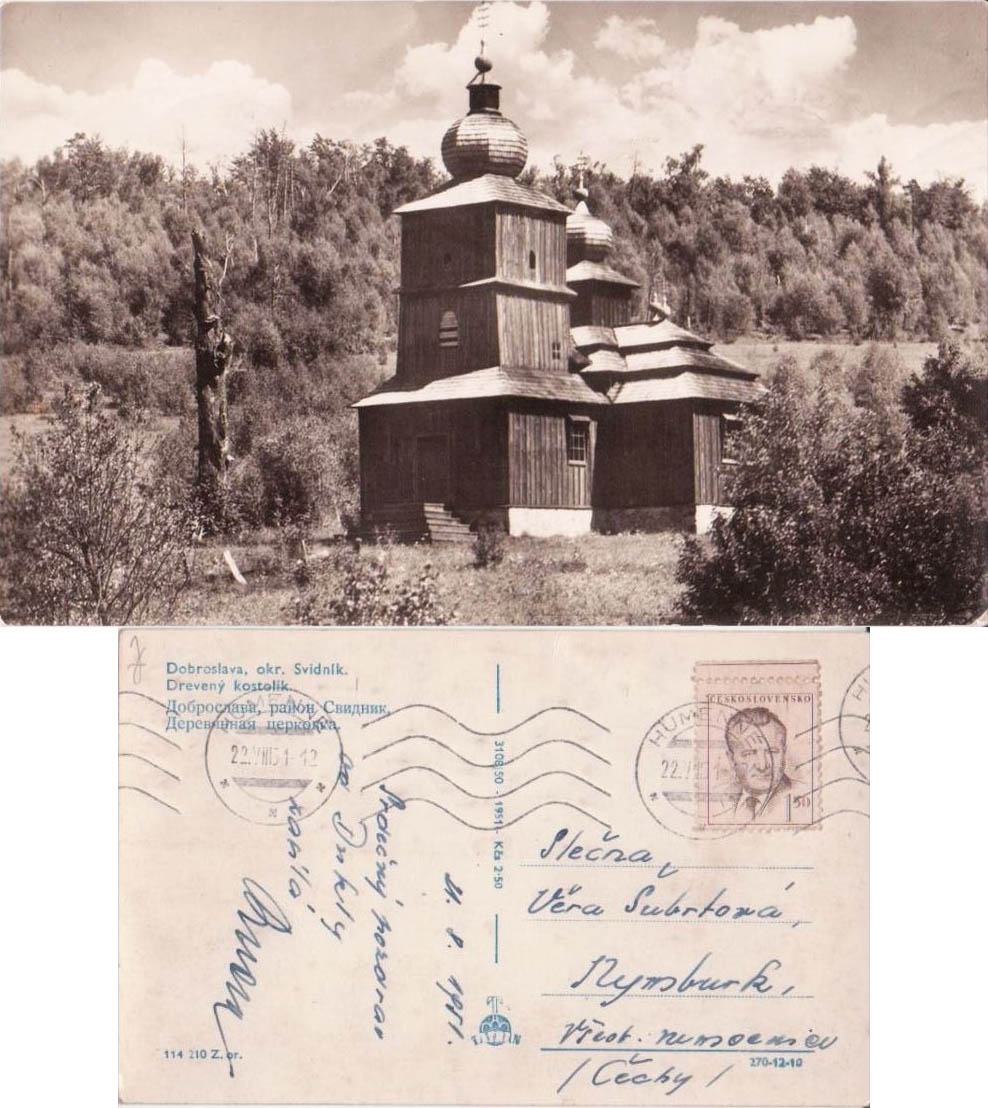 Dobroslava, okr. Svidník.
Drevený kostolík.
Доброслава, район Свидник.
Деревянная церковка.
HUMENNÉ
22.VIII51-12
HUMEN
22.VII51-12
HU
ČESKOSLOVENSKO
1 50
3108/50 - 1951 - Kčs 2·50
21. 8. 1951.
Srdečný pozdrav
Slečna,
Věra Šubrtová,
Nymburk,
Všeob. nemocnice
/ Čechy /
114 210 Z. or.
270-12-10